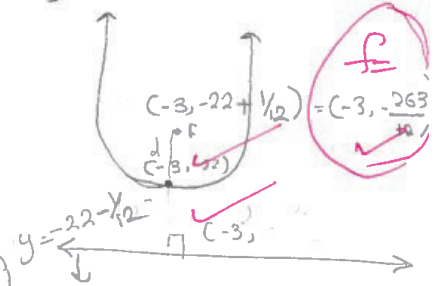 f
(-3, -22 + 1/12) = (-3, -263/12
F
d
(-3, -22)
y = -22 - 1/12
(-3,